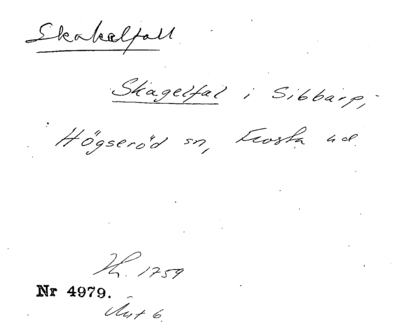 Skakelfall
Skagelfal i Sibbarp,
Högseröd sn, Frosta hd
1759
Nr 4979.